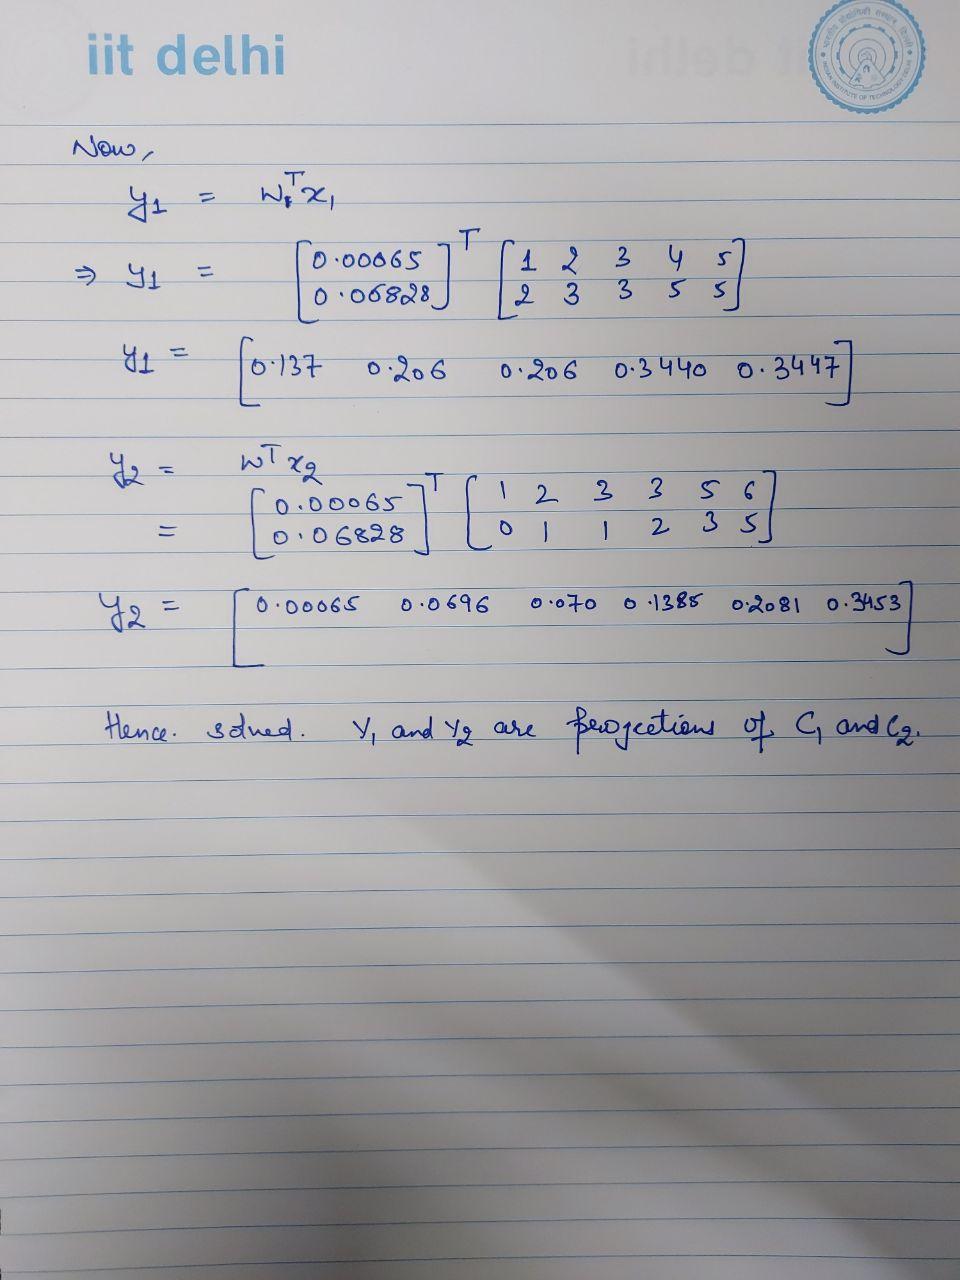 iit delhi
Now,
y1 = w₁ᵀx₁
⇒ y1 = [0.00065 0.06828]ᵀ [1 2 3 4 5
2 3 3 5 5]
y1 = [0.137 0.206 0.206 0.3440 0.3447]
y2 = wᵀx2
= [0.00065 0.06828]ᵀ [1 2 3 3 5 6
0 1 1 2 3 5]
y2 = [0.00065 0.0696 0.070 0.1385 0.2081 0.3453]
Hence. solved. Y₁ and Y2 are projections of C₁ and C2.